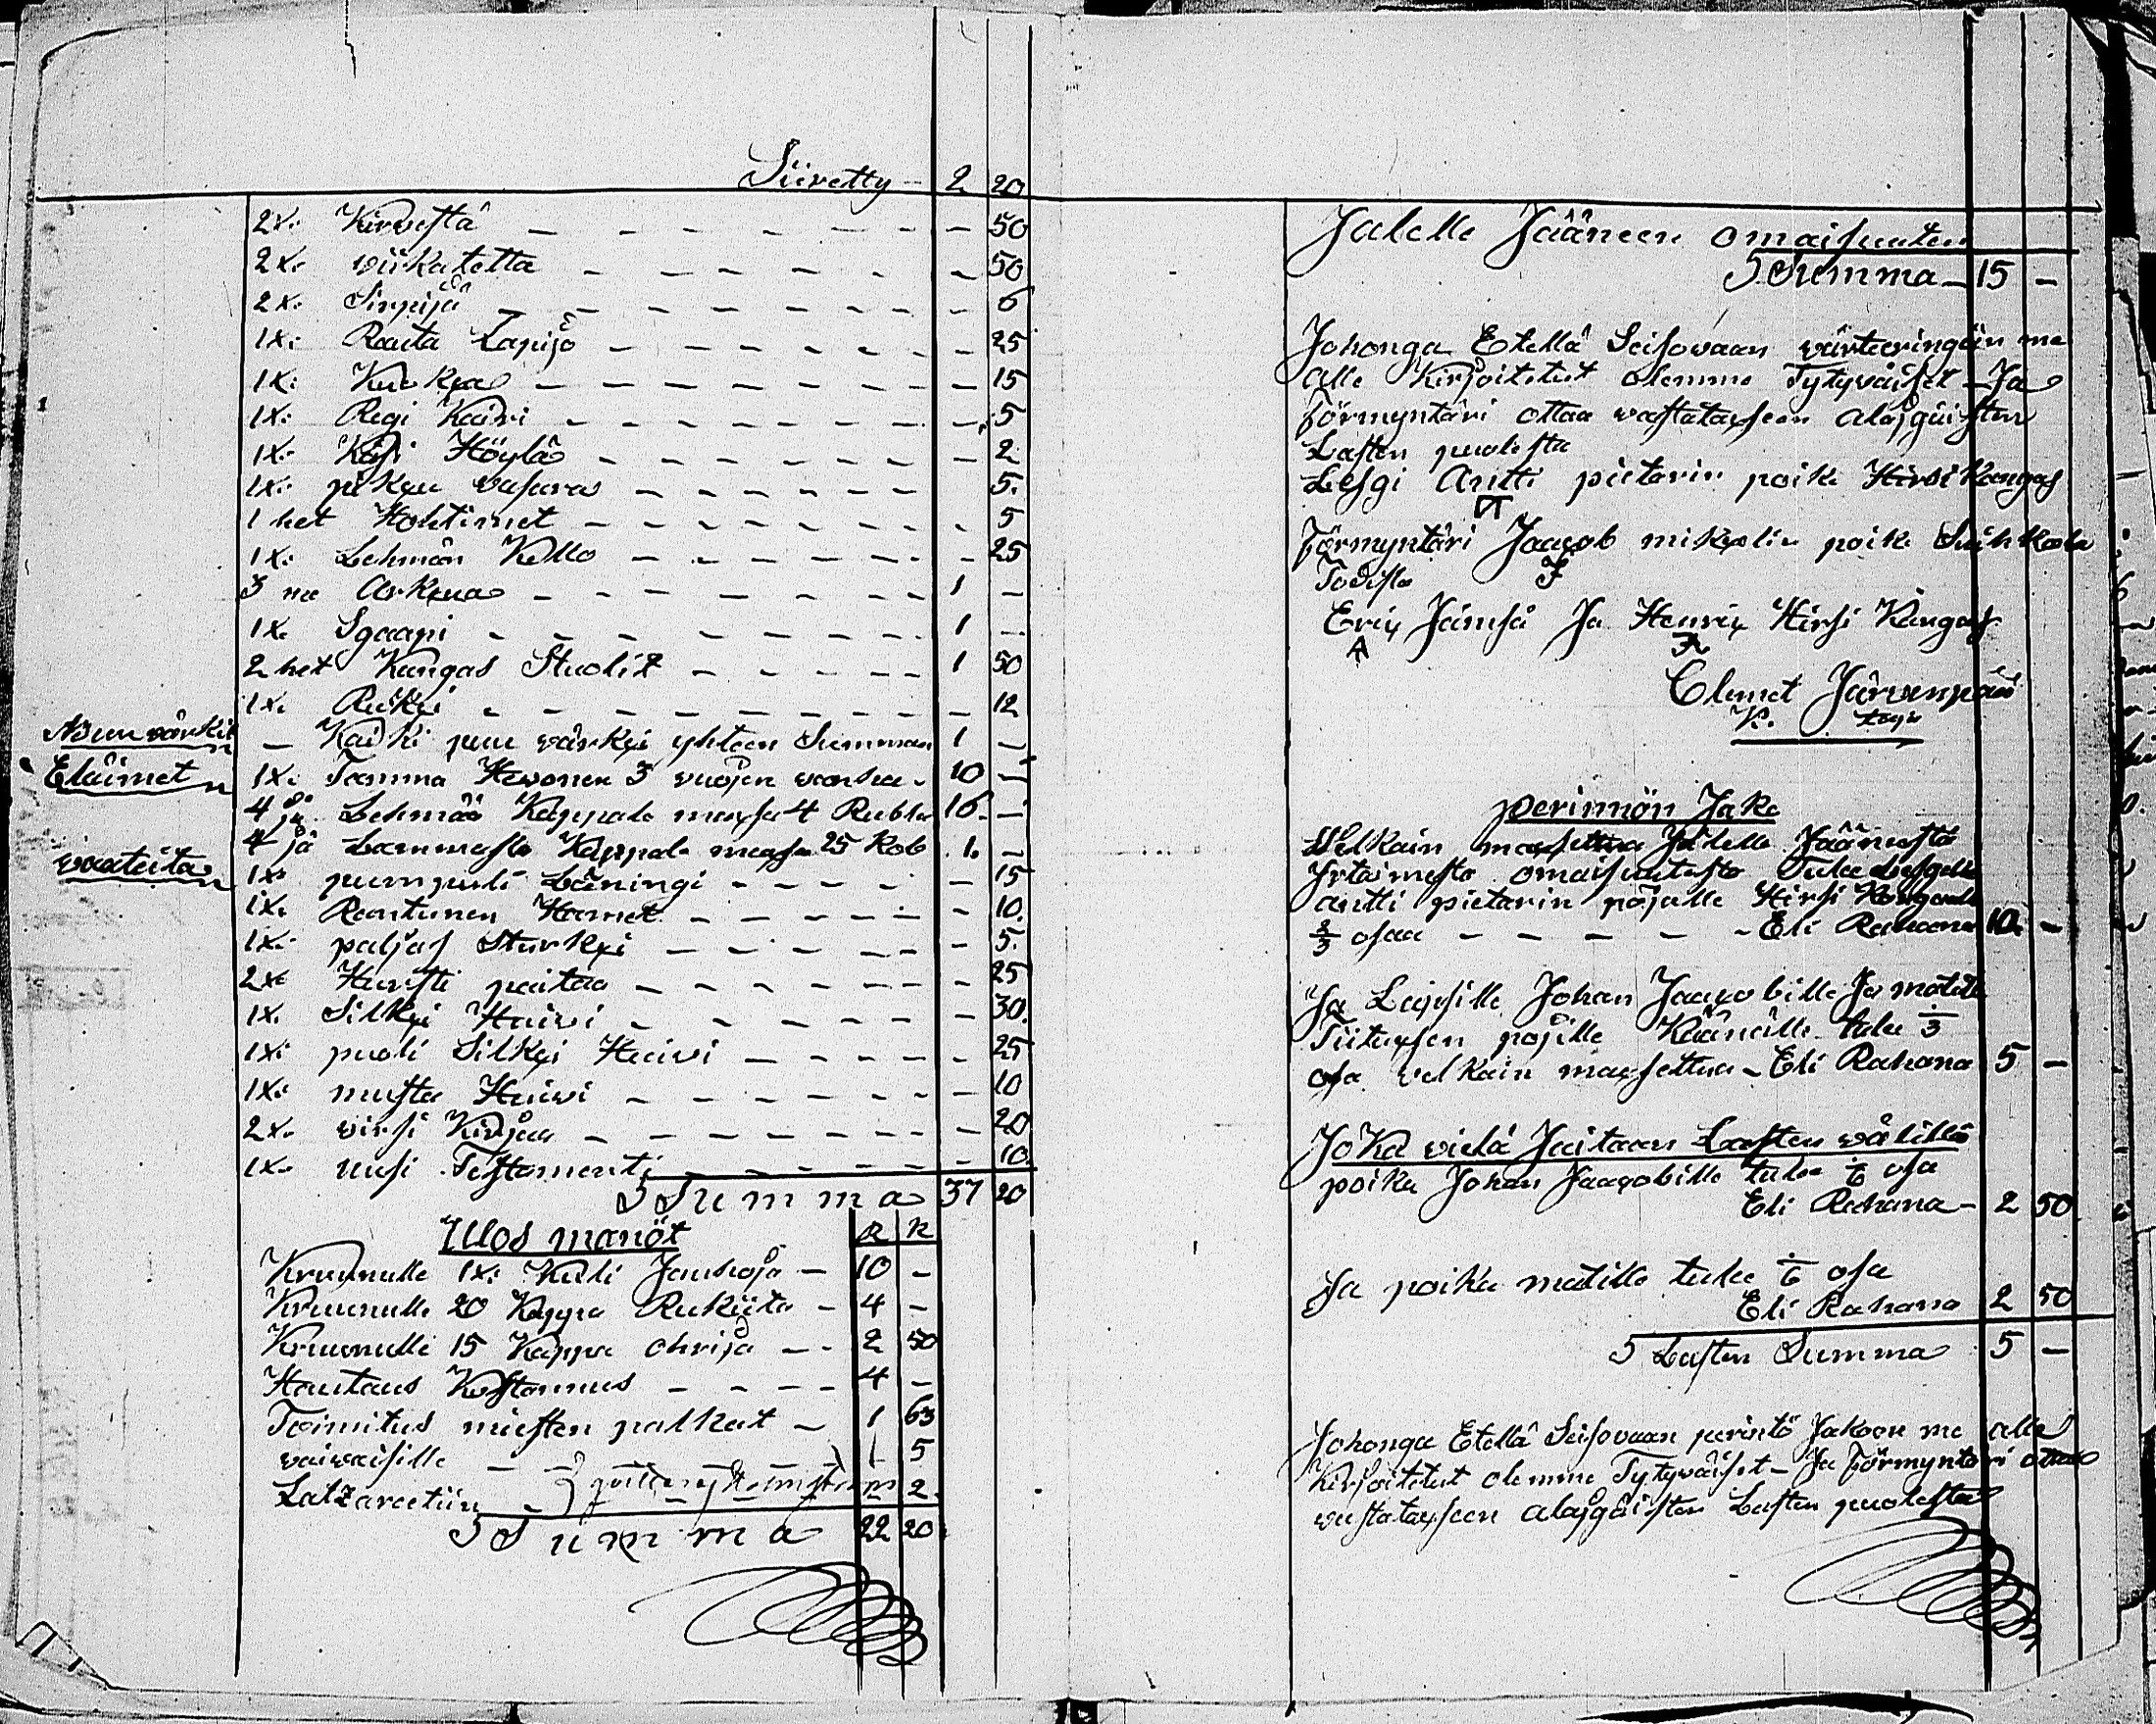 Siiretty - 2 20
2x: Kirvestä - 50
2x. viikatetta - 50
2x. Sirpijä - 6
1x: Rauta Lapijo - 25
1x: Kuokxa - 15
1x: Regi Kaivi - 5
1x: Käsi Höylä - 2
1x: vasara - 5.
1 het Hohtimet - 5
1x: Lehmän Kello - 25
3 na Arkxua 1 -
1x. Sgaapi 1 -
2 het Kangas Stuolit 1 50
1x. Rukxi - 12
Puu värkit - Kaikki puu värkxi yhteen Summan 1 -
Eläimet 1x. Tamma Hevonen 3 vuojen vanha 10 -
4 jä Lehmää Kappale maxsa 4 Rubla 16. -
4 jä Lammasta Kappale maxsa 25 Kob 1. -
vaateita 1x. pumpuli Läningi - 15
1x. Rantunen Hamet - 10.
1x. paljas Sturkxi - 5.
2x Hursti paitaa - 25
1x. Silkxi Huivi - 30.
1x: puoli Silkxi Huivi - 25
1x: musta Huivi - 10
2x. virsi Kirjaa - 20
1x. uusi Testamenti - 10.
Summa 37 20
Ulos manöt R K
Kruunulle 1x: Kuli Jauhoja - 10 -
Kruunulle 20 Kappa Rukiita - 4 -
Kruunulle 15 Kappa ohrija - 2 50
Hautaus Kustannus 4 -
Toimitus miesten palkat - 1 63
vaivaisille 5
Latzareetiin 2.
Summa 22 20
Jalelle Jääneen omaisuuten
Summa - 15 -
Johonga Etellä Seisovaan värteeringiin me
alle Kirjoitetut olemme Tytyväiset - Ja
förmyntäri ottaa vastataxseen alajgäisten
Lasten puolesta
Lesgi Antti pietarin poika Hirsi Kangas
förmyntäri Jaacob mikxelin poika Suihkola
Todista
Erix Jämsä Ja Henrix Hirsi Kangas
Clemet Järvenpää
K.
perinnön Jako
Welkain maxsettua Jälelle Jäänestä
Irtaimesta omaisuutesta Tulee Lesgelle
antti pietarin pojalle Hirsi Kangaalle
2/3 osaa - Eli Rahana 10. -
Ja Lapsille Johan Jaacobille Ja matille
Tiituxsen pojille Käänälle tulee 1/3
osa velkain maxsettua - Eli Rahana 5 -
Joka vielä Jaitaan Lasten välillä
poika Johan Jaacobille tulee 1/6 osa
Eli Rahana - 2 50
Ja poika matille tulee 1/6 osa
Eli Rahana 2 50
Lasten Summa 5 -
Johonga Etellä Seisovaan perintö Jakoon me alle
Kirjoitetut olemme Tytyväiset - Ja förmyntäri ottaa
vastataxseen alajgäisten Lasten puolesta